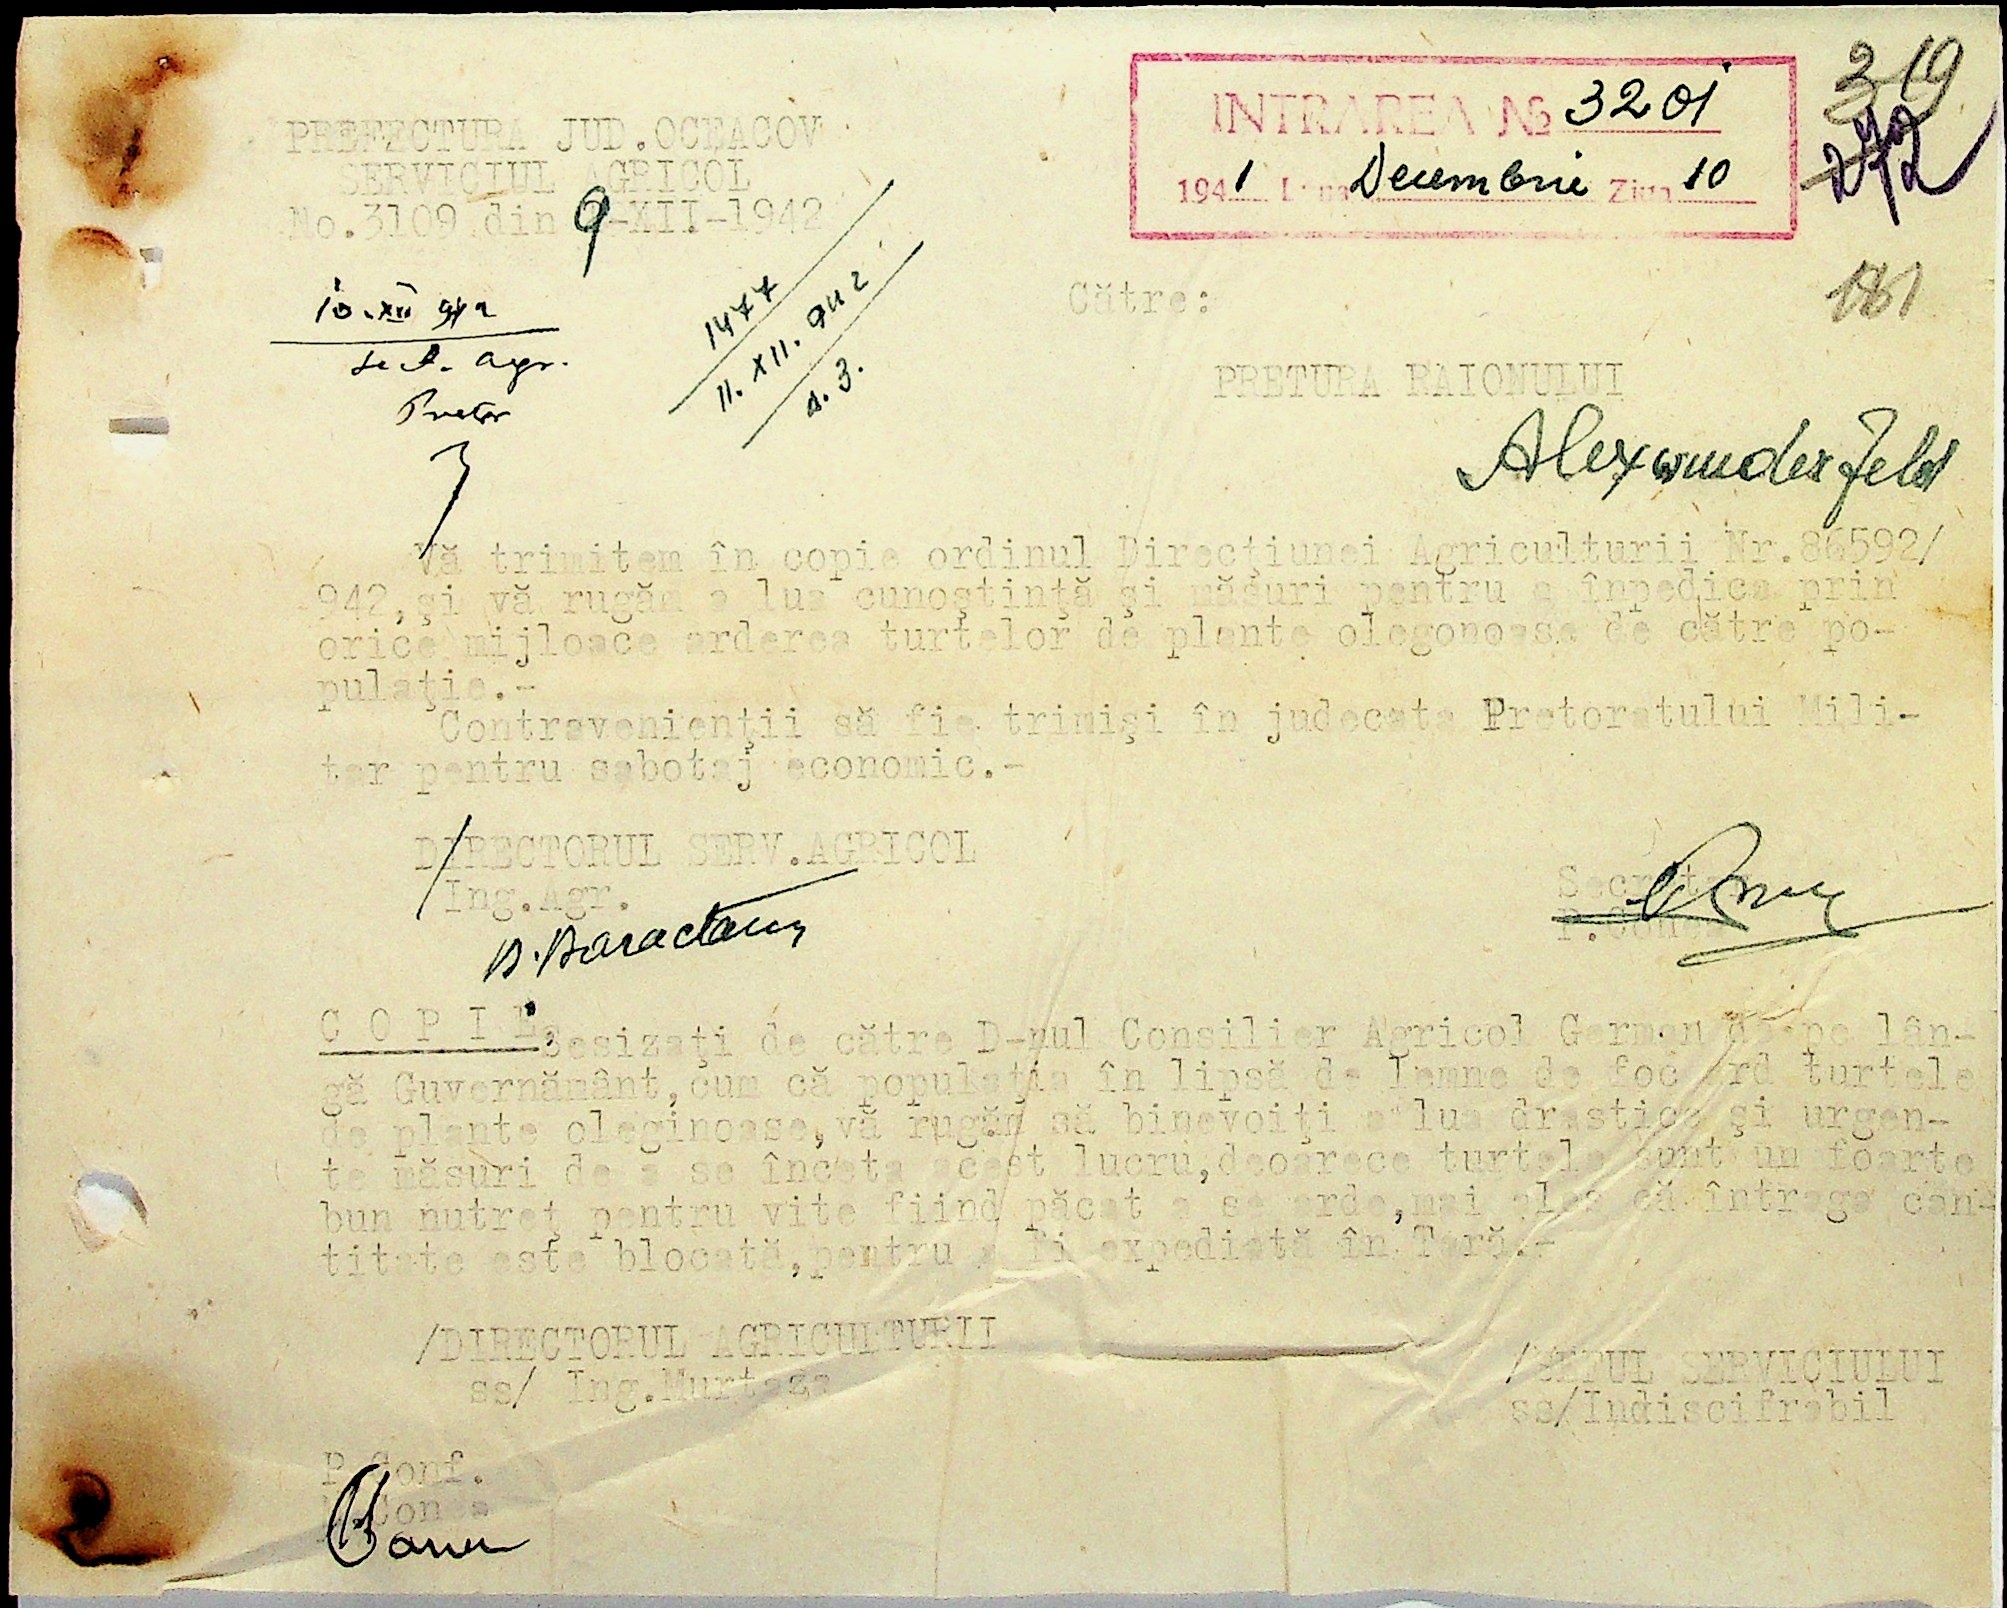 PREFECTURA JUD.OCEACOV
SERVICIUL AGRICOL
No.3109 din 9-XII-1942
INTRAREA № 3201
1941 Luna Decembrie Ziua 10
319
272
181
10.XII 942
Agr.
Pretor
1477
11.XII.942
Către:
PRETURA RAIONULUI
Alexanderfeld
Vă trimitem în copie ordinul Direcţiunei Agriculturii Nr.86592/
942,şi vă rugăm a lua cunoştinţă şi măsuri pentru a înpedica prin
orice mijloace arderea turtelor de plante olegonoase de către po-
pulaţie.-
Contravenienţii să fie trimişi în judecata Pretoratului Mili-
tar pentru sabotaj economic.-
DIRECTORUL SERV.AGRICOL
Ing.Agr.
Secretar
P.Conea
C O P I E.
Sesizaţi de către D-nul Consilier Agricol German de pe lân-
gă Guvernământ,cum că populaţia în lipsă de lemne de foc ard turtele
de plante oleginoase,vă rugăm să binevoiţi a lua drastice şi urgen-
te măsuri de a se înceta acest lucru,deoarece turtele sunt un foarte
bun nutreţ pentru vite fiind păcat a se arde,mai ales că întraga can-
titate este blocată,pentru a fi expediată în Ţară.-
/DIRECTORUL AGRICULTURII
ss/ Ing.Murtaza
/ŞEFUL SERVICIULUI
ss/Indiscifrabil
P.Conf.
P.Conea